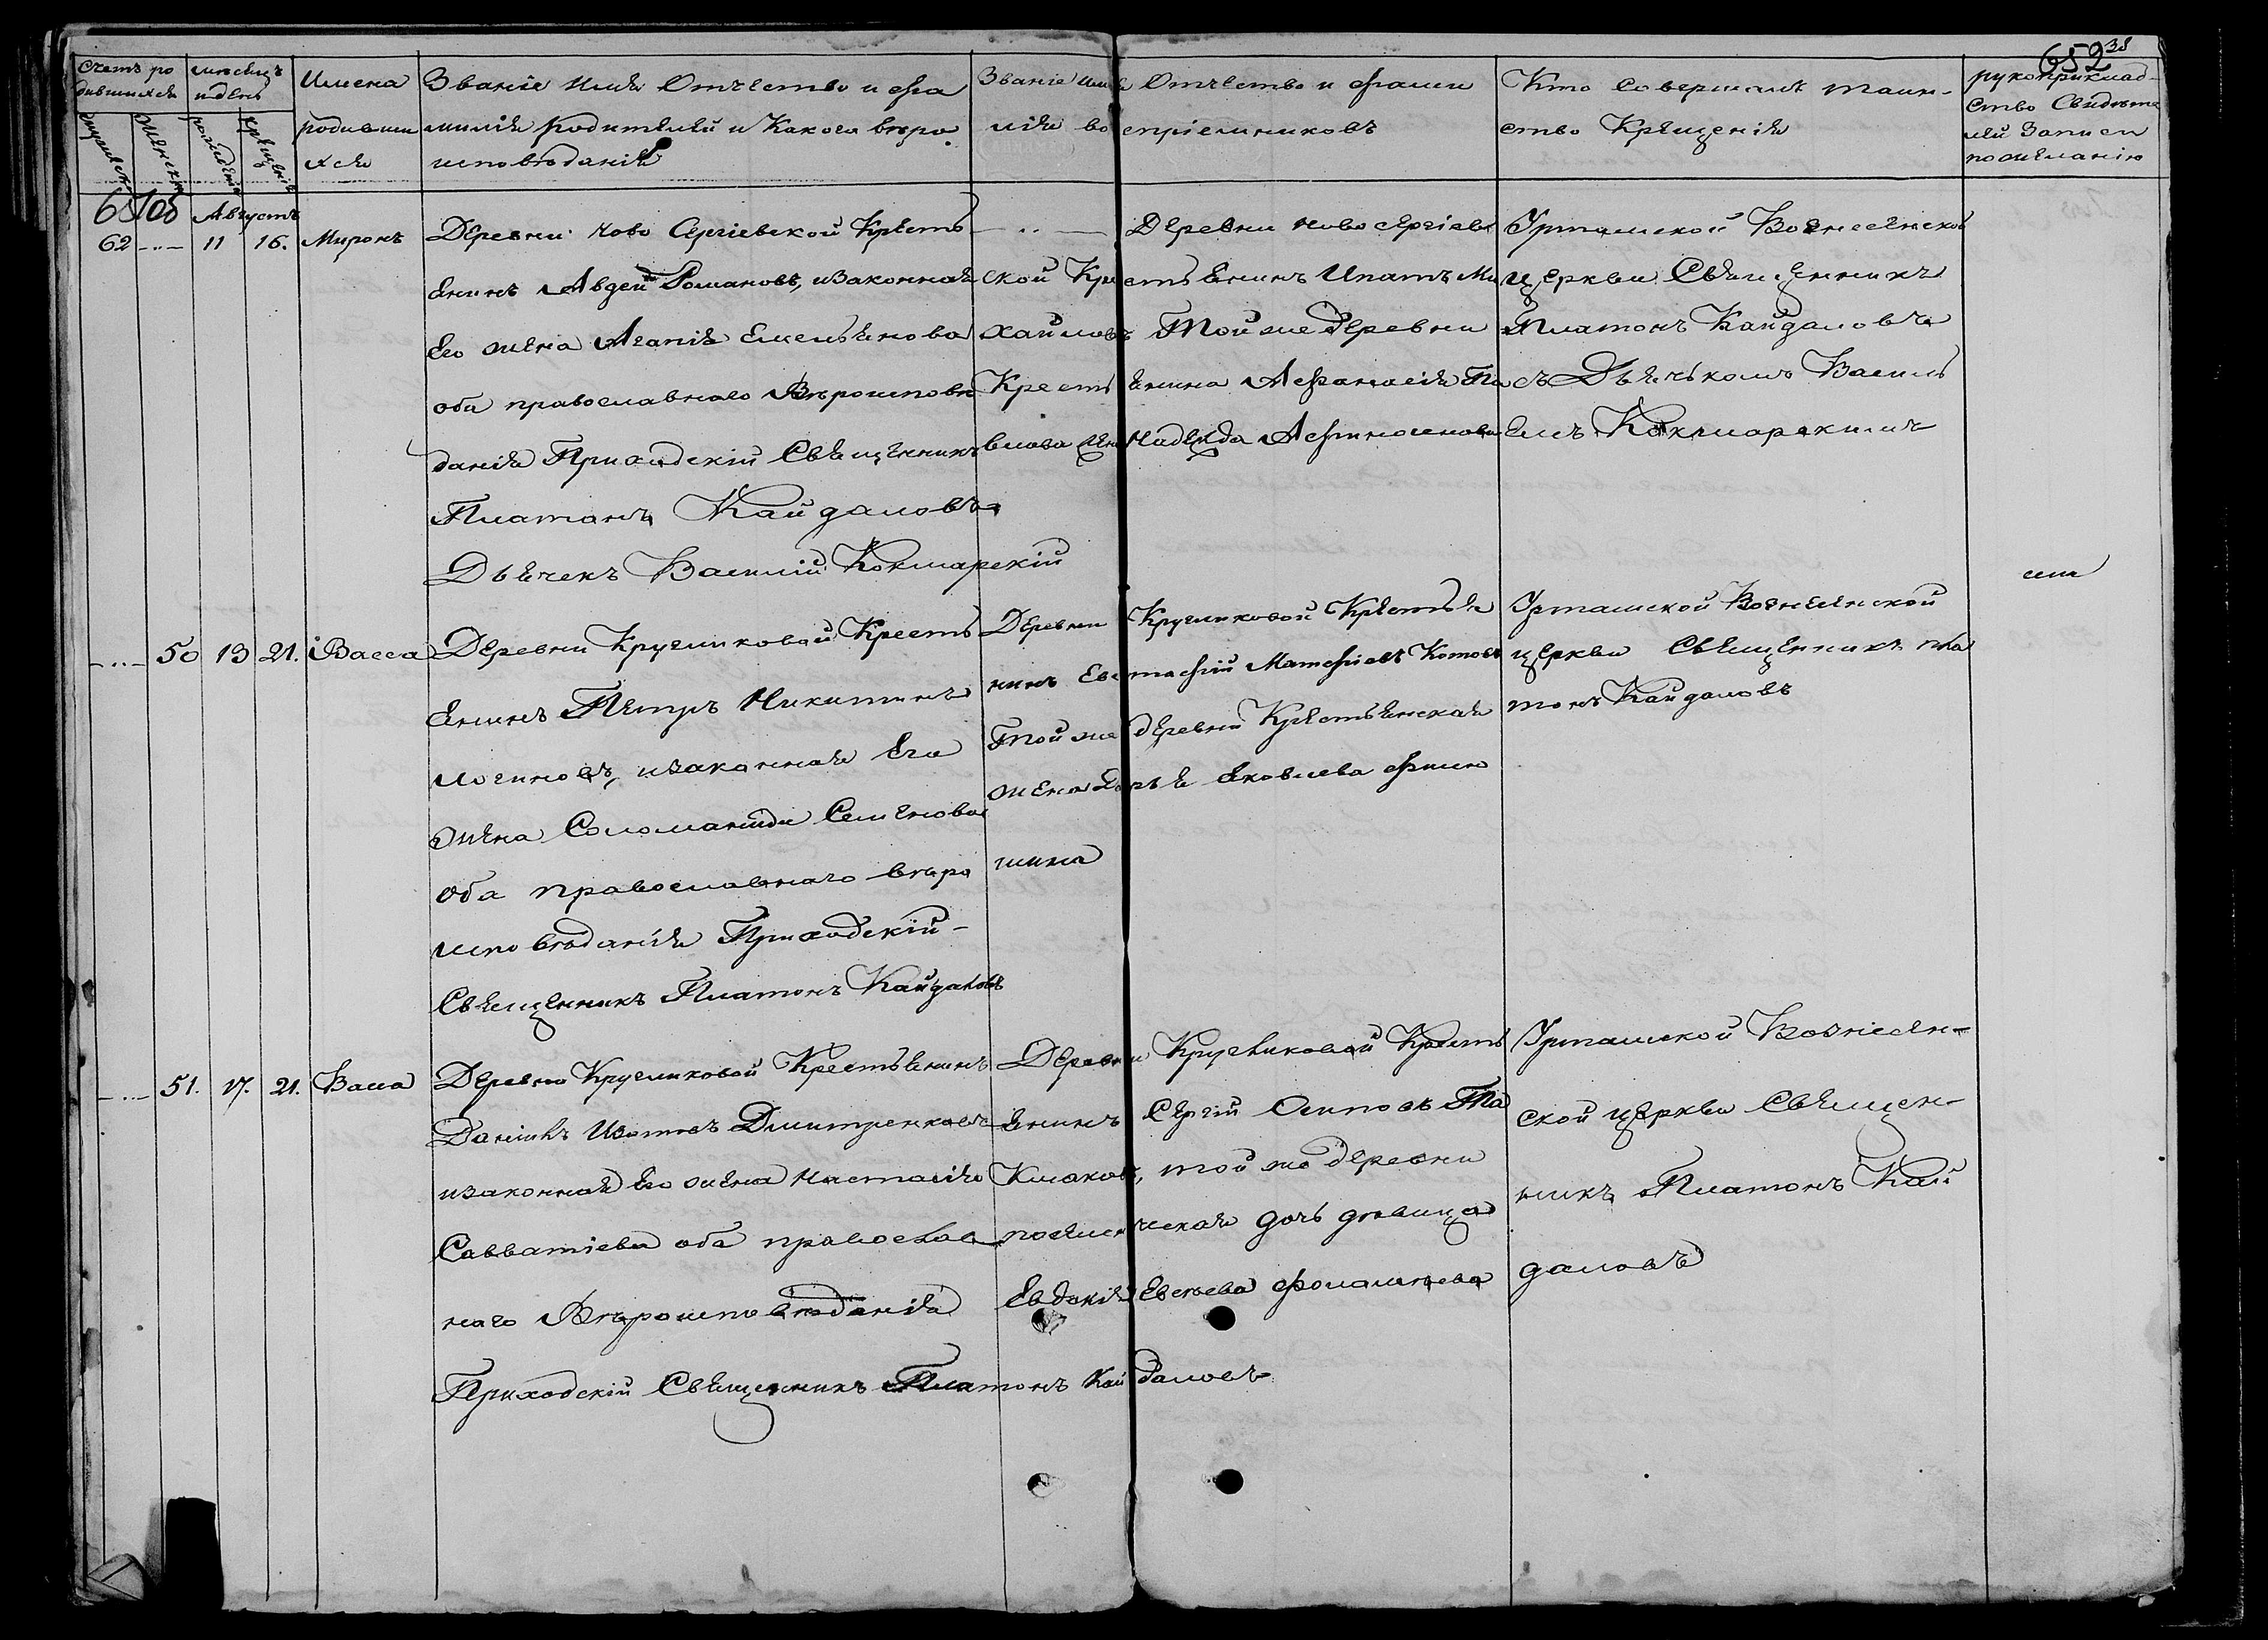 652 38
Счетъ ро
дившихся
мѣсяцъ
и день
Имена
родивши
хся
Званіе Имя Отчество и фа
милія родителей и Какого вѣро
исповѣданія
Званіе Имя Отчество и фами
лія воспріемниковъ
Кто Совершалъ таин-
ство Крещенія
рукоприклад-
ство Свидѣте
лей Записи
по желанію
Женска
рожденія
крещенія
Августъ
62 11 16. Миронъ
Деревни Ново Сергіевской Кресть
янинъ Авдей Романовъ, изаконная
Его жена Агапія Емельянова
оба православнаго Вѣроисповѣ
данія Приходскій Священникъ
Платонъ Кайдаловъ
Дьячекъ Василій Кокшарскій
Деревни Новосергіев
ской Крестьянинъ Ипатъ Ми
хайловъ Той же деревни
Крестьянина Афанасія Па
влова Надежда Афанасиева
Урташской Вознесенской
церкви Священникъ
Платонъ Кайдаловъ
съ Дьячькомъ Василь
емъ Кокшарскимъ
50 13 21. Васса
Деревни Кругликовой Кресть
янинъ Петръ Никитинъ
Логиновъ, изаконная Его
жена Соломанида Семенова
оба православнаго вѣро
исповѣданія Приходскій-
Священникъ Платонъ Кайдаловъ
Деревни Кругликовой Крестья
нинъ Евстафій Матфіевъ Котовъ
Той же деревни Крестьянская
жена Дарья Яковлева Филю
шина
Урташской Вознесенской
церкви Священникъ Пла
тонъ Кайдаловъ
51. 17. 21. Васса
Деревни Кругликовой Крестьянинъ
Данилъ Изотовъ Дмитренковъ
изаконная Его жена Наталія
Савватіева оба православ
наго Вѣроисповѣданія
Приходскій Священникъ Платонъ Кайдаловъ
Деревни Кругликовой Кресть
янинъ Сергій Осиповъ Та
клаковъ, той же деревни
дочь дѣвица
Евдокія Евсѣева
Урташской Вознесен-
ской церкви Священ-
никъ Платонъ Кай
даловъ